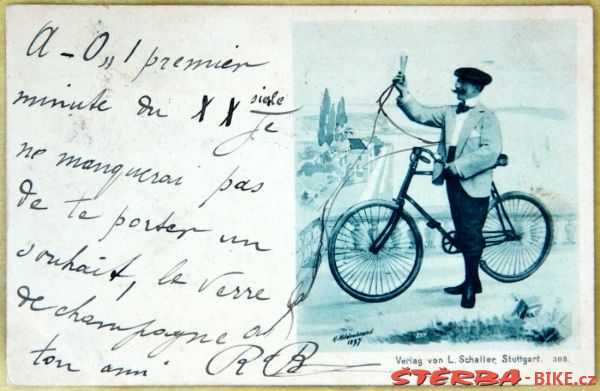 A - 0,,1 premier
minute du XX siecle je
ne manquerai pas
de te porter un
souhait, le verre
de champagne
ton ami R B
1897
Verlag von L. Schaller, Stuttgart. 398.
ŠTĚRBA-BIKE.cz